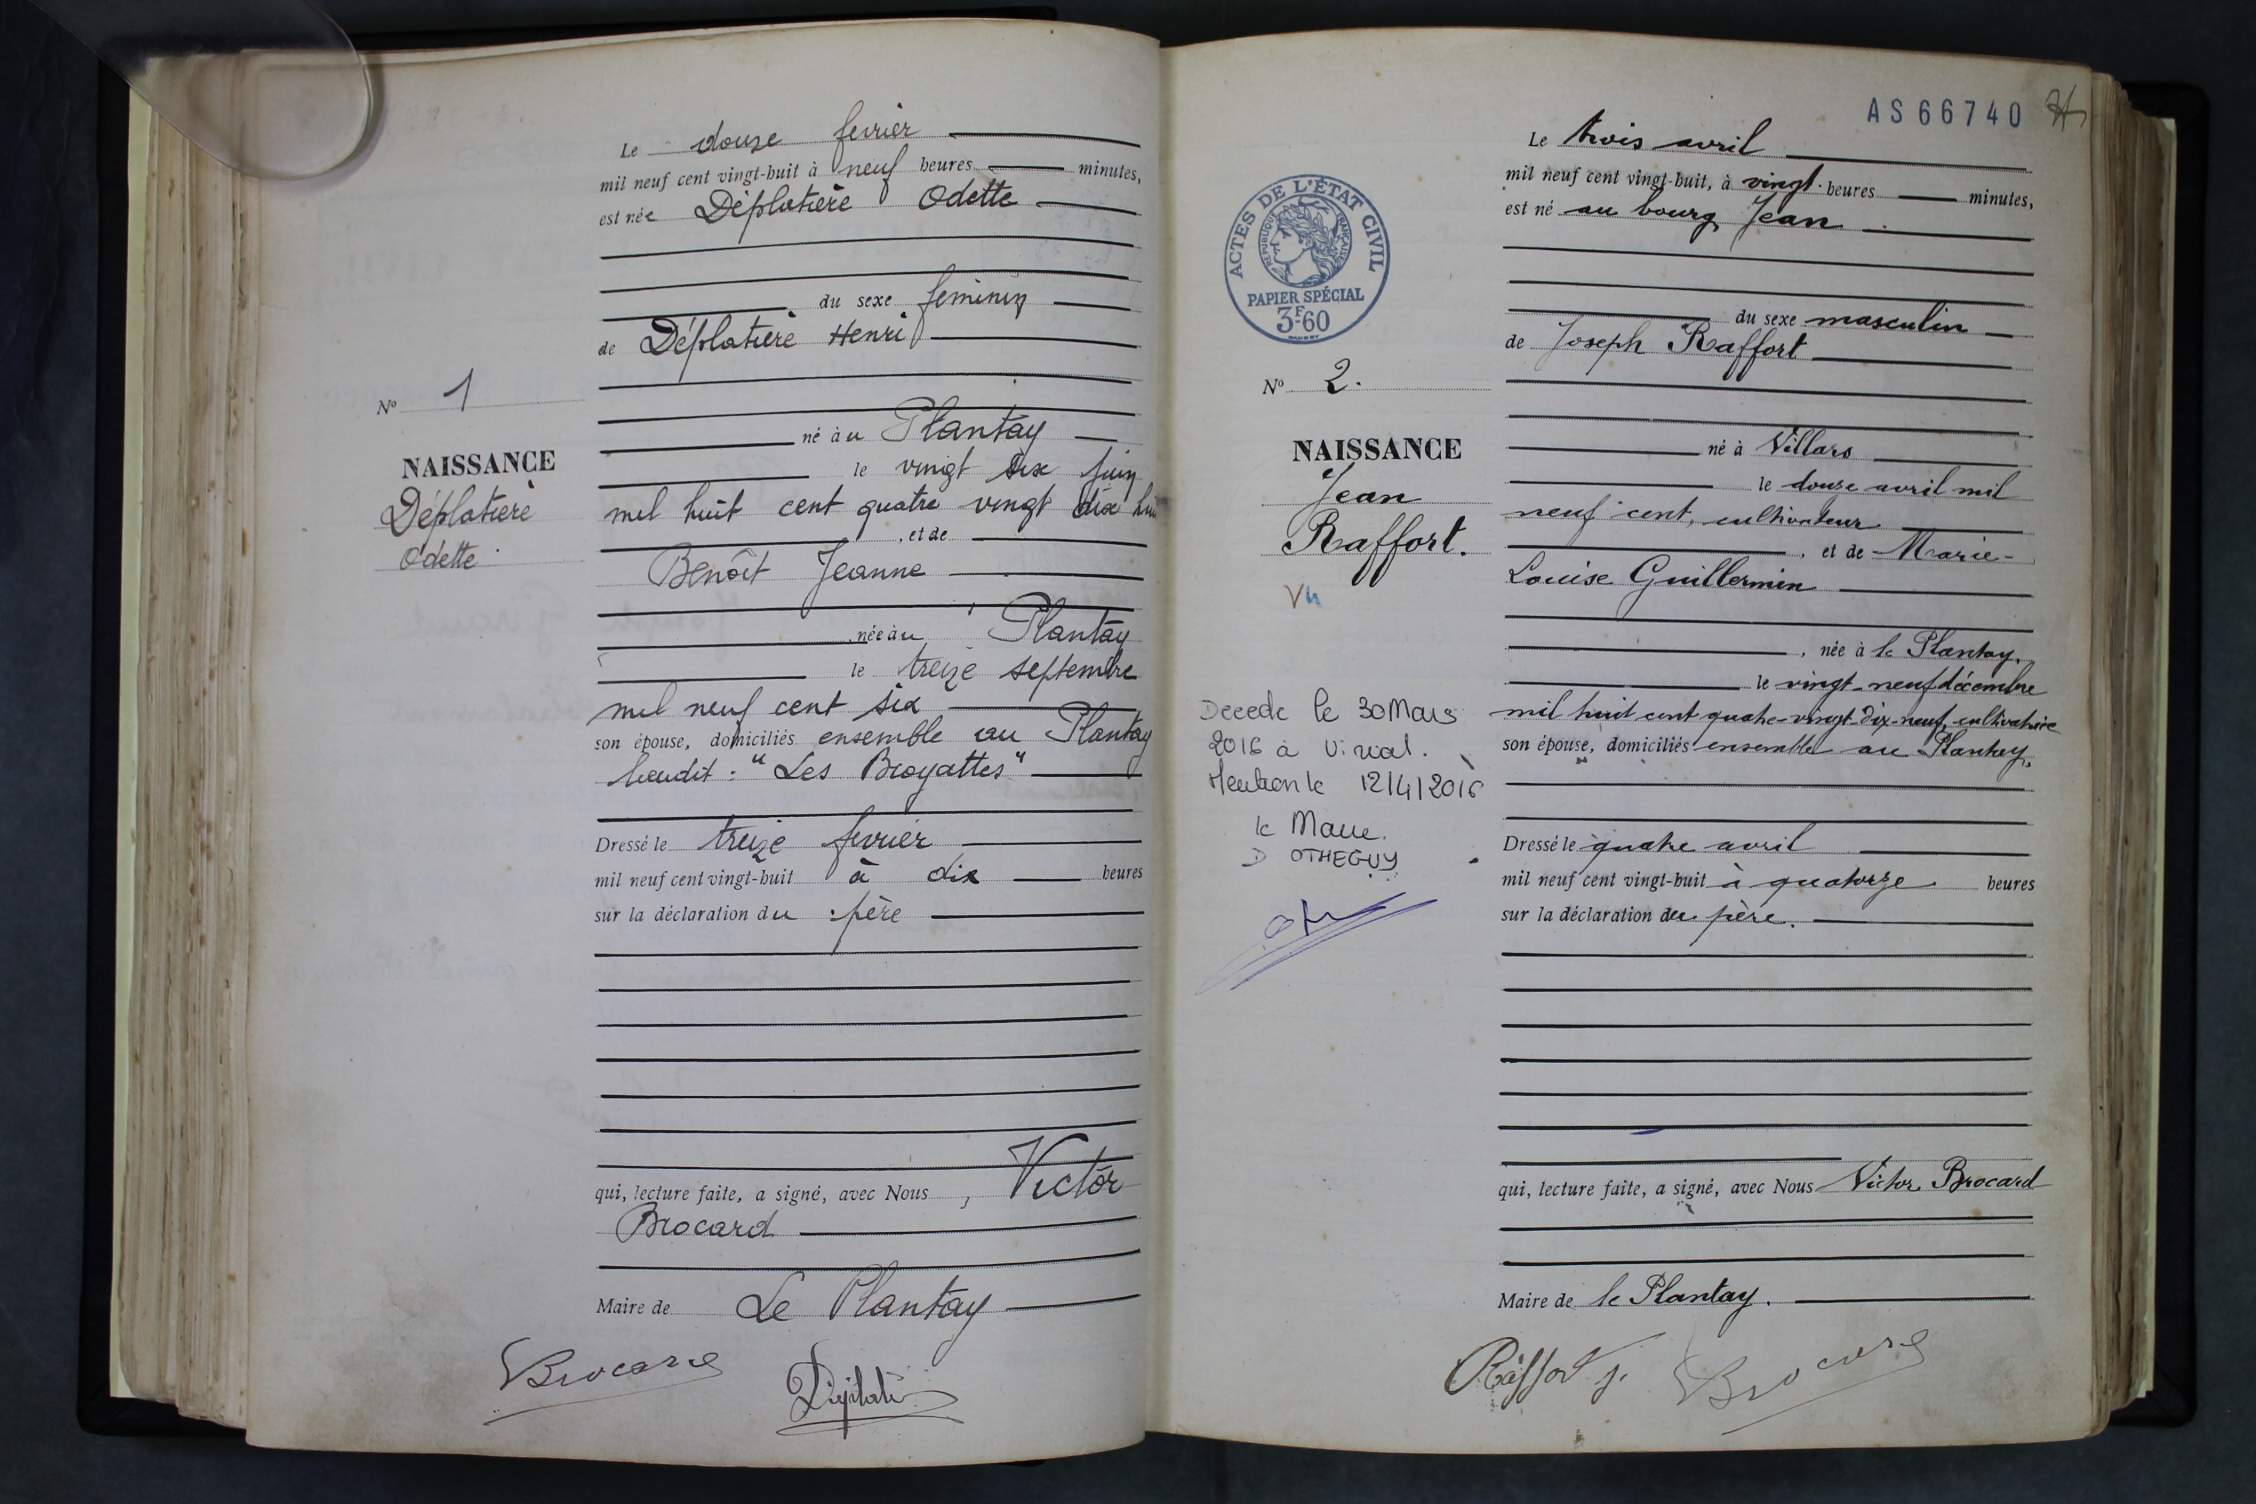 Le douze fevrier
mil neuf cent vingt-huit à neuf heures minutes,
est née Déplatière Odette
du sexe feminin
de Déplatière Henri
né au Plantay
le vingt six juin
mil huit cent quatre vingt dix
, et de
Benoît Jeanne
née au Plantay
le treize septembre
mil neuf cent six
son épouse, domiciliés ensemble au Plantay
lieudit : "Les Broyattes"
Dressé le treize fevrier
mil neuf cent vingt-huit à dix heures
sur la déclaration du père
qui, lecture faite, a signé, avec Nous, Victor
Brocard
Maire de Le Plantay
Brocard
N° 1
NAISSANCE
Déplatière
Odette
AS66740
ACTES DE L'ÉTAT CIVIL
RÉPUBLIQUE FRANÇAISE
PAPIER SPÉCIAL
3F60
N° 2.
NAISSANCE
Jean
Raffort.
Vu
Decede le 30 Mars
2016 à
Mention le 12/4/2016
le Maire.
D OTHEGUY
Le trois avril
mil neuf cent vingt-huit, à vingt heures minutes,
est né au bourg Jean
du sexe masculin
de Joseph Raffort
né à Villars
le douze avril mil
neuf cent, cultivateur
, et de Marie-
Louise Guillermin
, née à le Plantay,
le vingt-neuf décembre
mil huit cent quatre-vingt-dix-neuf, cultivatrice
son épouse, domiciliés ensemble au Plantay,
Dressé le quatre avril
mil neuf cent vingt-huit à quatorze heures
sur la déclaration du père.
qui, lecture faite, a signé, avec Nous Victor Brocard
Maire de le Plantay.
Raffort J.
Brocard